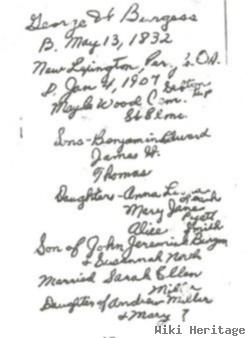 George W Burgess
B. May 13, 1832
New Lexington, Perry O.
D. Jan 4, 1907
Maple Wood Cem.
St Elmo
Sons - Benjamin Edward
James W.
Thomas
Daughters - Anna
Mary Jane
Pyatt
Alice Smith
Son of John Jeremiah Burgess
& Susannah North
Married Sarah Ellen
Miller
Daughter of Andrew Miller
& Mary ?
Wiki Heritage